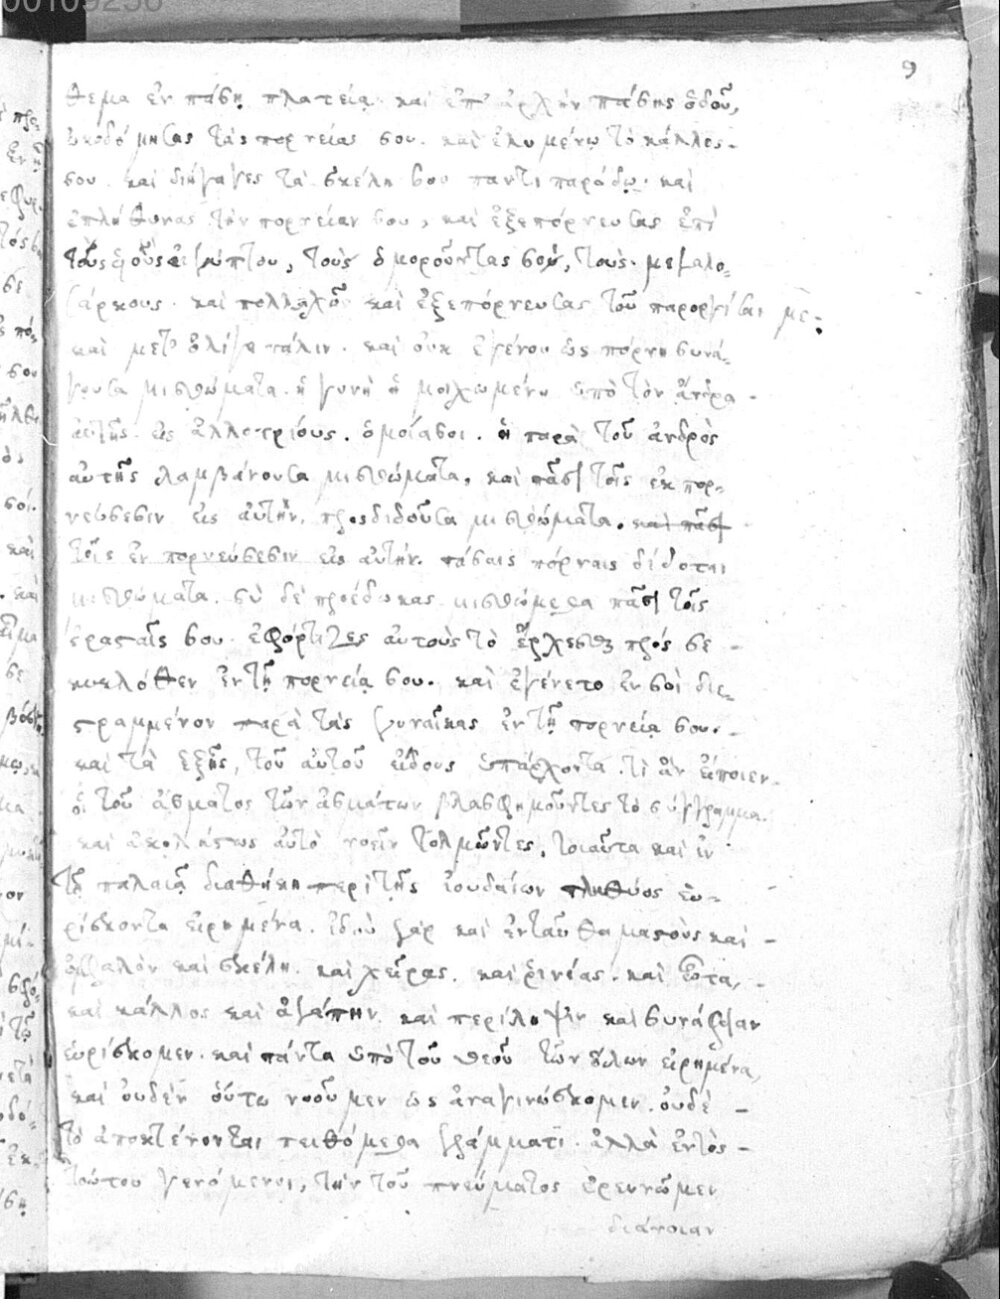 00109256
9
θεμα ἐν πάσῃ πλατείᾳ. καὶ ἐπ' ἀρχὴν πάσης ὁδοῦ,
ὠκοδόμησας τὰς πορνείας σου. καὶ ἐλυμένω τὸ κάλλος
σου. καὶ διήγαγες τὰ σκέλη σου παντὶ παρόδῳ. καὶ
ἐπλήθυνας τὴν πορνείαν σου, καὶ ἐξεπόρνευσας ἐπὶ
τοὺς υἱοὺς αἰγύπτου, τοὺς ὁμοροῦντας σου, τοὺς μεγαλο-
σάρκους. καὶ πολλαχῶς καὶ ἐξεπόρνευσας τοῦ παροργίσαι με.
καὶ μετ' ὀλίγα πάλιν. καὶ οὐκ ἐγένου ὡς πόρνη συνά-
γουσα μισθώματα. ἡ γυνὴ ἡ μοιχωμένη ὑπὸ τὸν ἄνδρα
αὐτῆς εἰς ἀλλοτρίους. ὁμοία σοι. ἡ παρὰ τοῦ ἀνδρὸς
αὐτῆς λαμβάνουσα μισθώματα. καὶ πᾶσι τοῖς ἐκπορ-
νεύσεσιν εἰς αὐτὴν. προσδιδοῦσα μισθώματα. καὶ πᾶσι
τοῖς ἐν πορνεύσεσιν εἰς αὐτὴν. πάσαις πόρναις δίδοται
μισθώματα. σὺ δὲ προέδωκας μισθώματα πᾶσι τοῖς
ἐρασταῖς σου. ἐφόρτιζες αὐτοὺς τὸ ἔρχεσθαι πρός σε
κυκλόθεν ἐν τῇ πορνείᾳ σου. καὶ ἐγένετο ἐν σοὶ διε-
στραμμένον παρὰ τὰς γυναῖκας ἐν τῇ πορνείᾳ σου.
καὶ τὰ ἑξῆς, τοῦ αὐτοῦ εἴδους ὑπάρχοντα. τί ἂν εἴποιεν
οἱ τοῦ ᾄσματος τῶν ᾀσμάτων βλασφημοῦντες τὸ σύγγραμμα.
καὶ ἀκολάστως αὐτὸ νοεῖν τολμῶντες, τοιαῦτα καὶ ἐν
τῇ παλαιᾷ διαθήκῃ περὶ τῆς ἰουδαίων πληθύος εὑ-
ρίσκοντα εἰρημένα. ἰδοὺ γὰρ καὶ ἐνταῦθα μαστοὺς καὶ
ὀμφαλὸν καὶ σκέλη. καὶ χεῖρας. καὶ ῥινέας. καὶ ὦτα,
καὶ κάλλος καὶ ἀγάπην. καὶ περίληψιν καὶ συνάφειαν
εὑρίσκομεν. καὶ πάντα ὑπὸ τοῦ θεοῦ τῶν ὅλων εἰρημένα,
καὶ οὐδὲν οὕτω νοοῦμεν ὡς ἀναγινώσκομεν. οὐδὲ
τῷ ἀποκτένονται πειθόμεθα γράμματι. ἀλλὰ ἐντὸς
τούτου γενόμενοι, τὴν τοῦ πνεύματος ἐρευνῶμεν
διάνοιαν